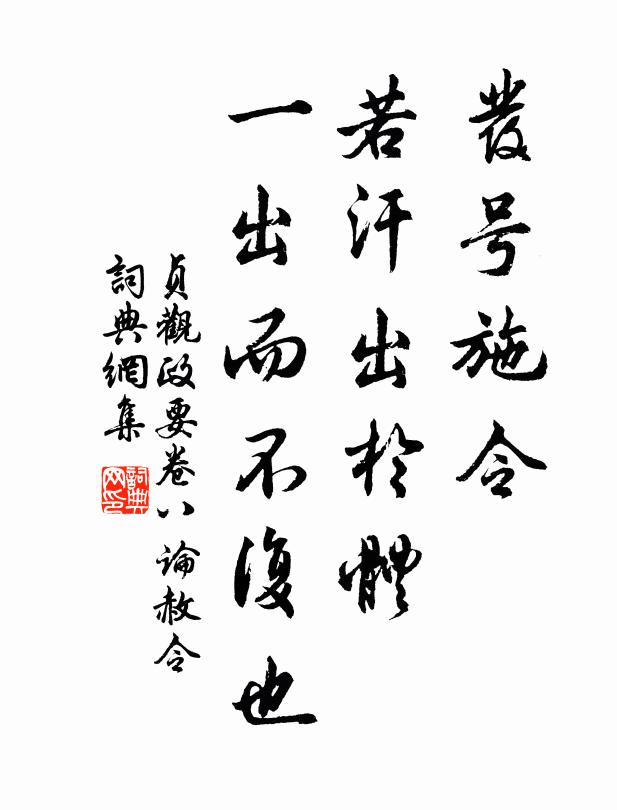 發号施令
若汗出於體
一出而不復也
貞觀政要卷八 論赦令
詞典網集
詞典網印